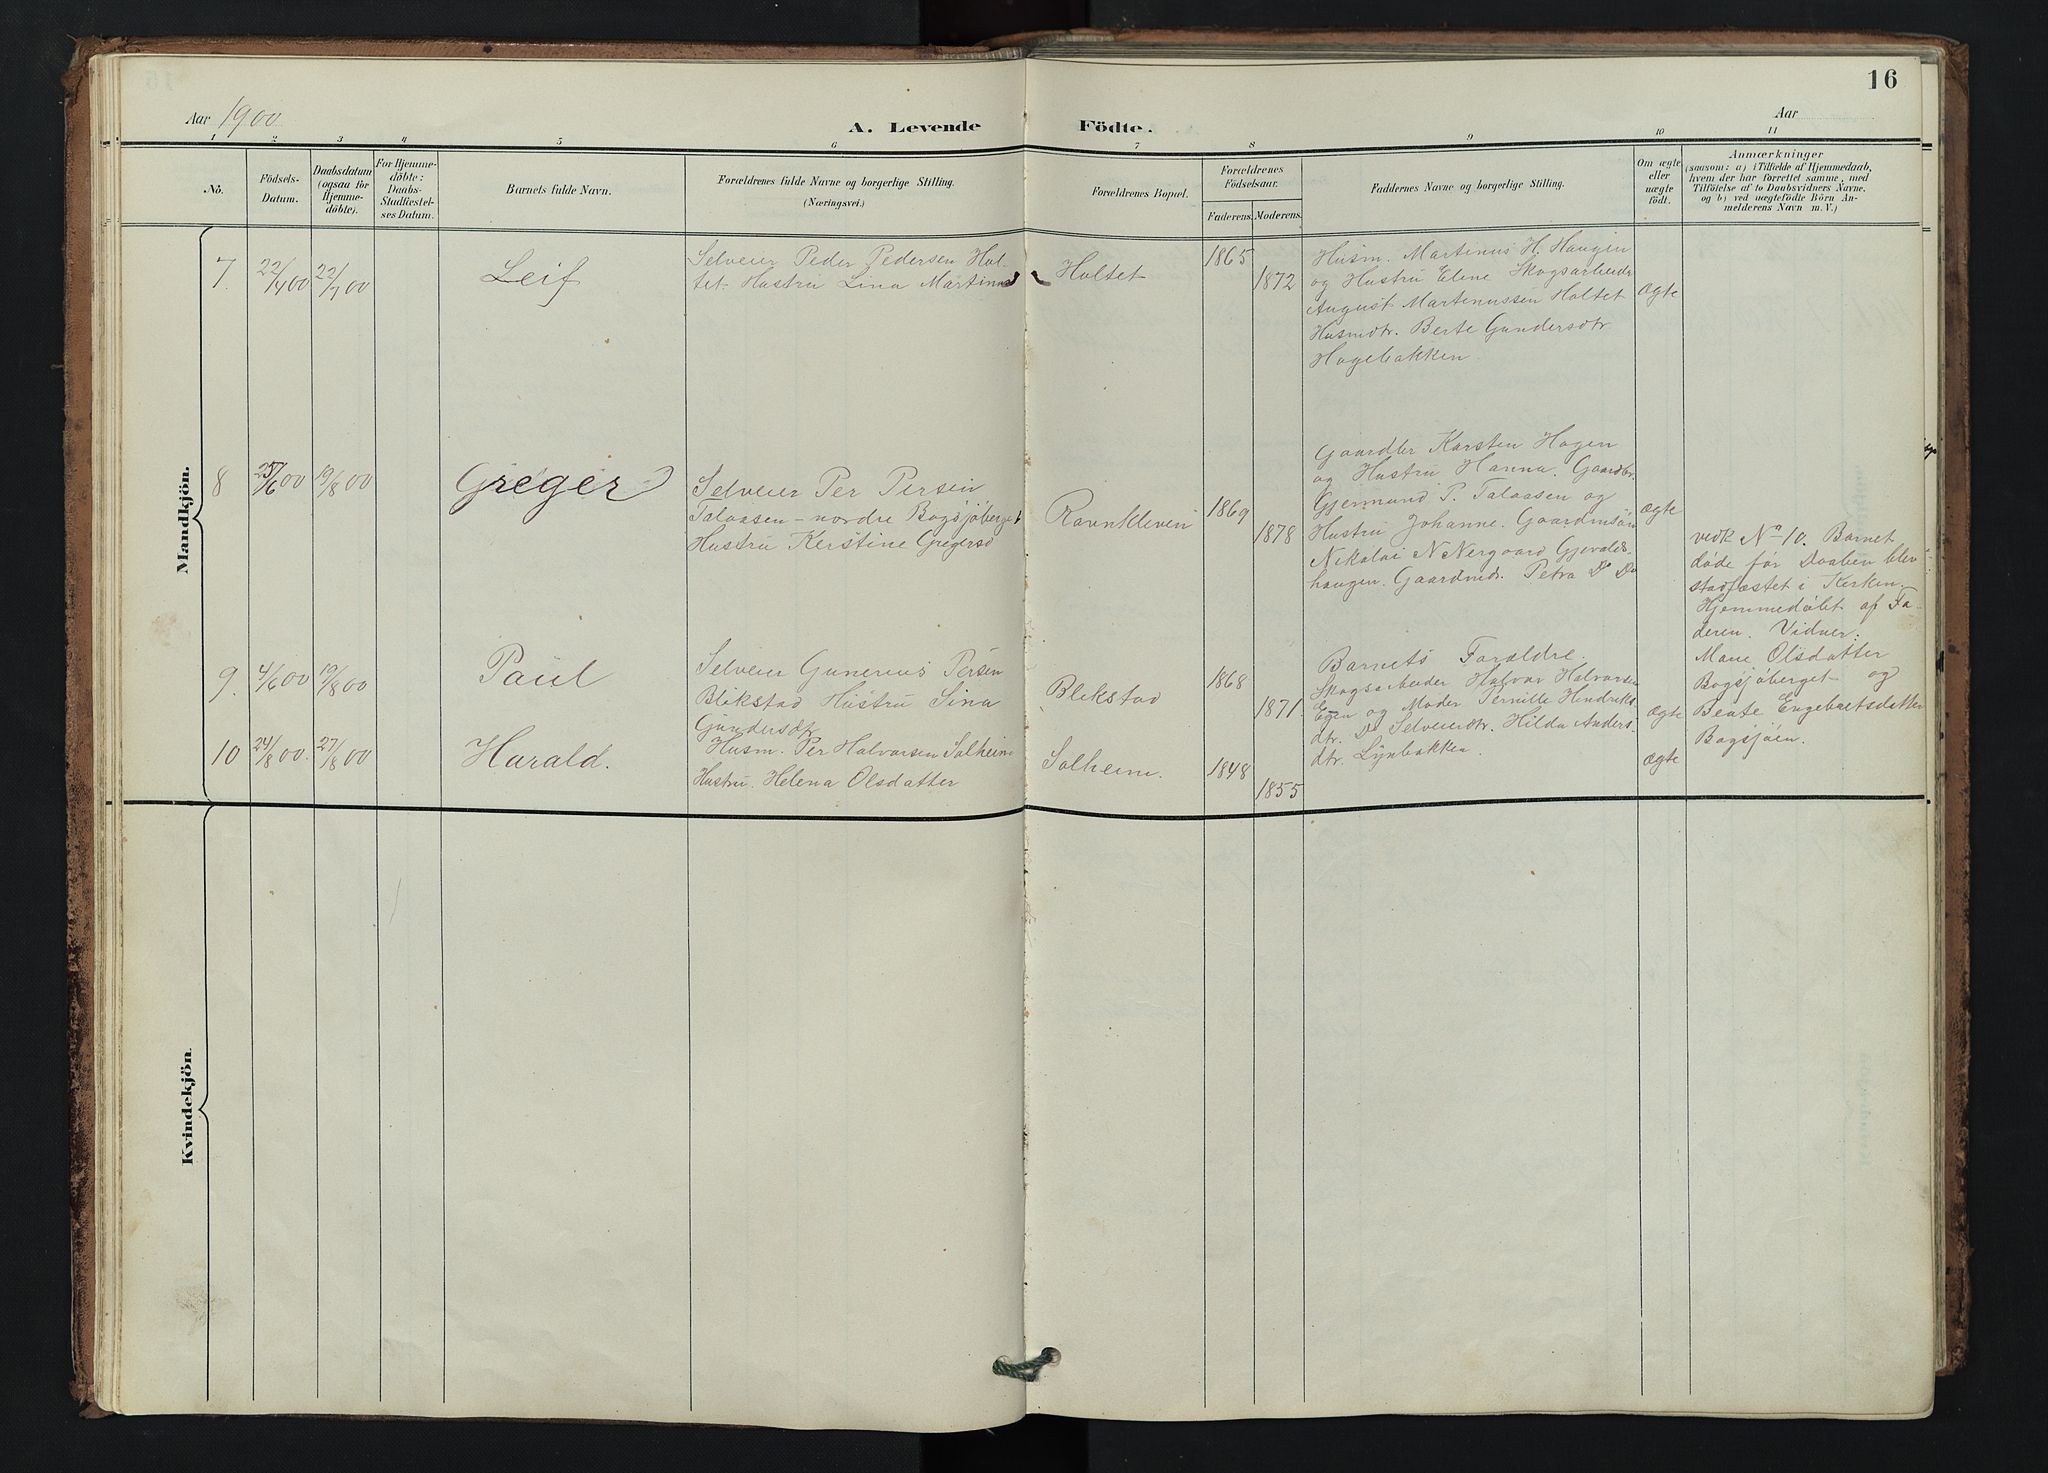 16
Aar 1900
A. Levende Födte.
Aar
1 2 3 4 5 6 7 8 9 10 11
No.
Födsels-
Datum.
Daabsdatum
(ogsaa for
Hjemme-
döbte).
For Hjemme-
döbte:
Daabs-
Stadfæstel-
ses Datum.
Barnets fulde Navn.
Forældrenes fulde Navne og borgerlige Stilling.
(Næringsvei.)
Forældrenes Bopæl.
Forældrenes
Födselsaar.
Faderens.
Moderens.
Faddernes Navne og borgerlige Stilling.
Om ægte
eller
uægte
födt.
Anmærkninger
(saasom: a) i Tilfælde af Hjemmedaab,
hvem der har forrettet samme, med
Tilföielse af to Daabsvidners Navne,
og b) ved uægtefödte Börn An-
melderens Navn m. V.)
Mandkjön.
7. 22/4 00 22/7 00
Leif
Selveier Peder Pedersen Hol-
tet. Hustru Lina Martinus
Holtet
1865
1872
Husm. Martinus H. Haugen
og Hustru Eline Skogsarbeider
August Martinussen Holtet
Husmdtr. Berte Gundersdtr
Hagebakken
ægte
8 25/6 00 19/8 00
Greger
Selveier Per Persen
Talaasen - nordre Bogsjøberget
Hustru Kerstine Gregersd
Ravnkleven
1869
1878
Gaardbr Karsten Hagen
og Hustru Hanna. Gaardbr.
Gjermund P. Talaasen og
Hustru Johanne. Gaardmsön
Nikolai N Nergaard Gjevalds-
haugen. Gaardmds. Petra Do Do
ægte
9. 4/6 00 19/8 00
Paul
Selveier Gunerius Persen
Blikstad Hustru Sina
Gundersdtr
Blekstad
1868
1871.
Barnets Forældre.
Skogsarbeider Halvor Halvorsen
Egen og Moder Pernille Hendriks
dtr. Do Selveierdtr. Hilda Anders
dtr. Lynbakken
ægte
10 24/8 00. 27/8 00
Harald.
Husm. Per Halvorsen Solheim
Hustru. Helena Olsdatter
Solheim.
1848
1855
ægte
vedk No 10. Barnet
døde før Daaben blev
stadfæstet i Kerken.
Hjemmedøbt af Fa-
deren. Vidner:
Mane Olsdatter
Bogsjøberget og
Beate Engebretsdatter
Bogsjøen.
Kvindekjön.